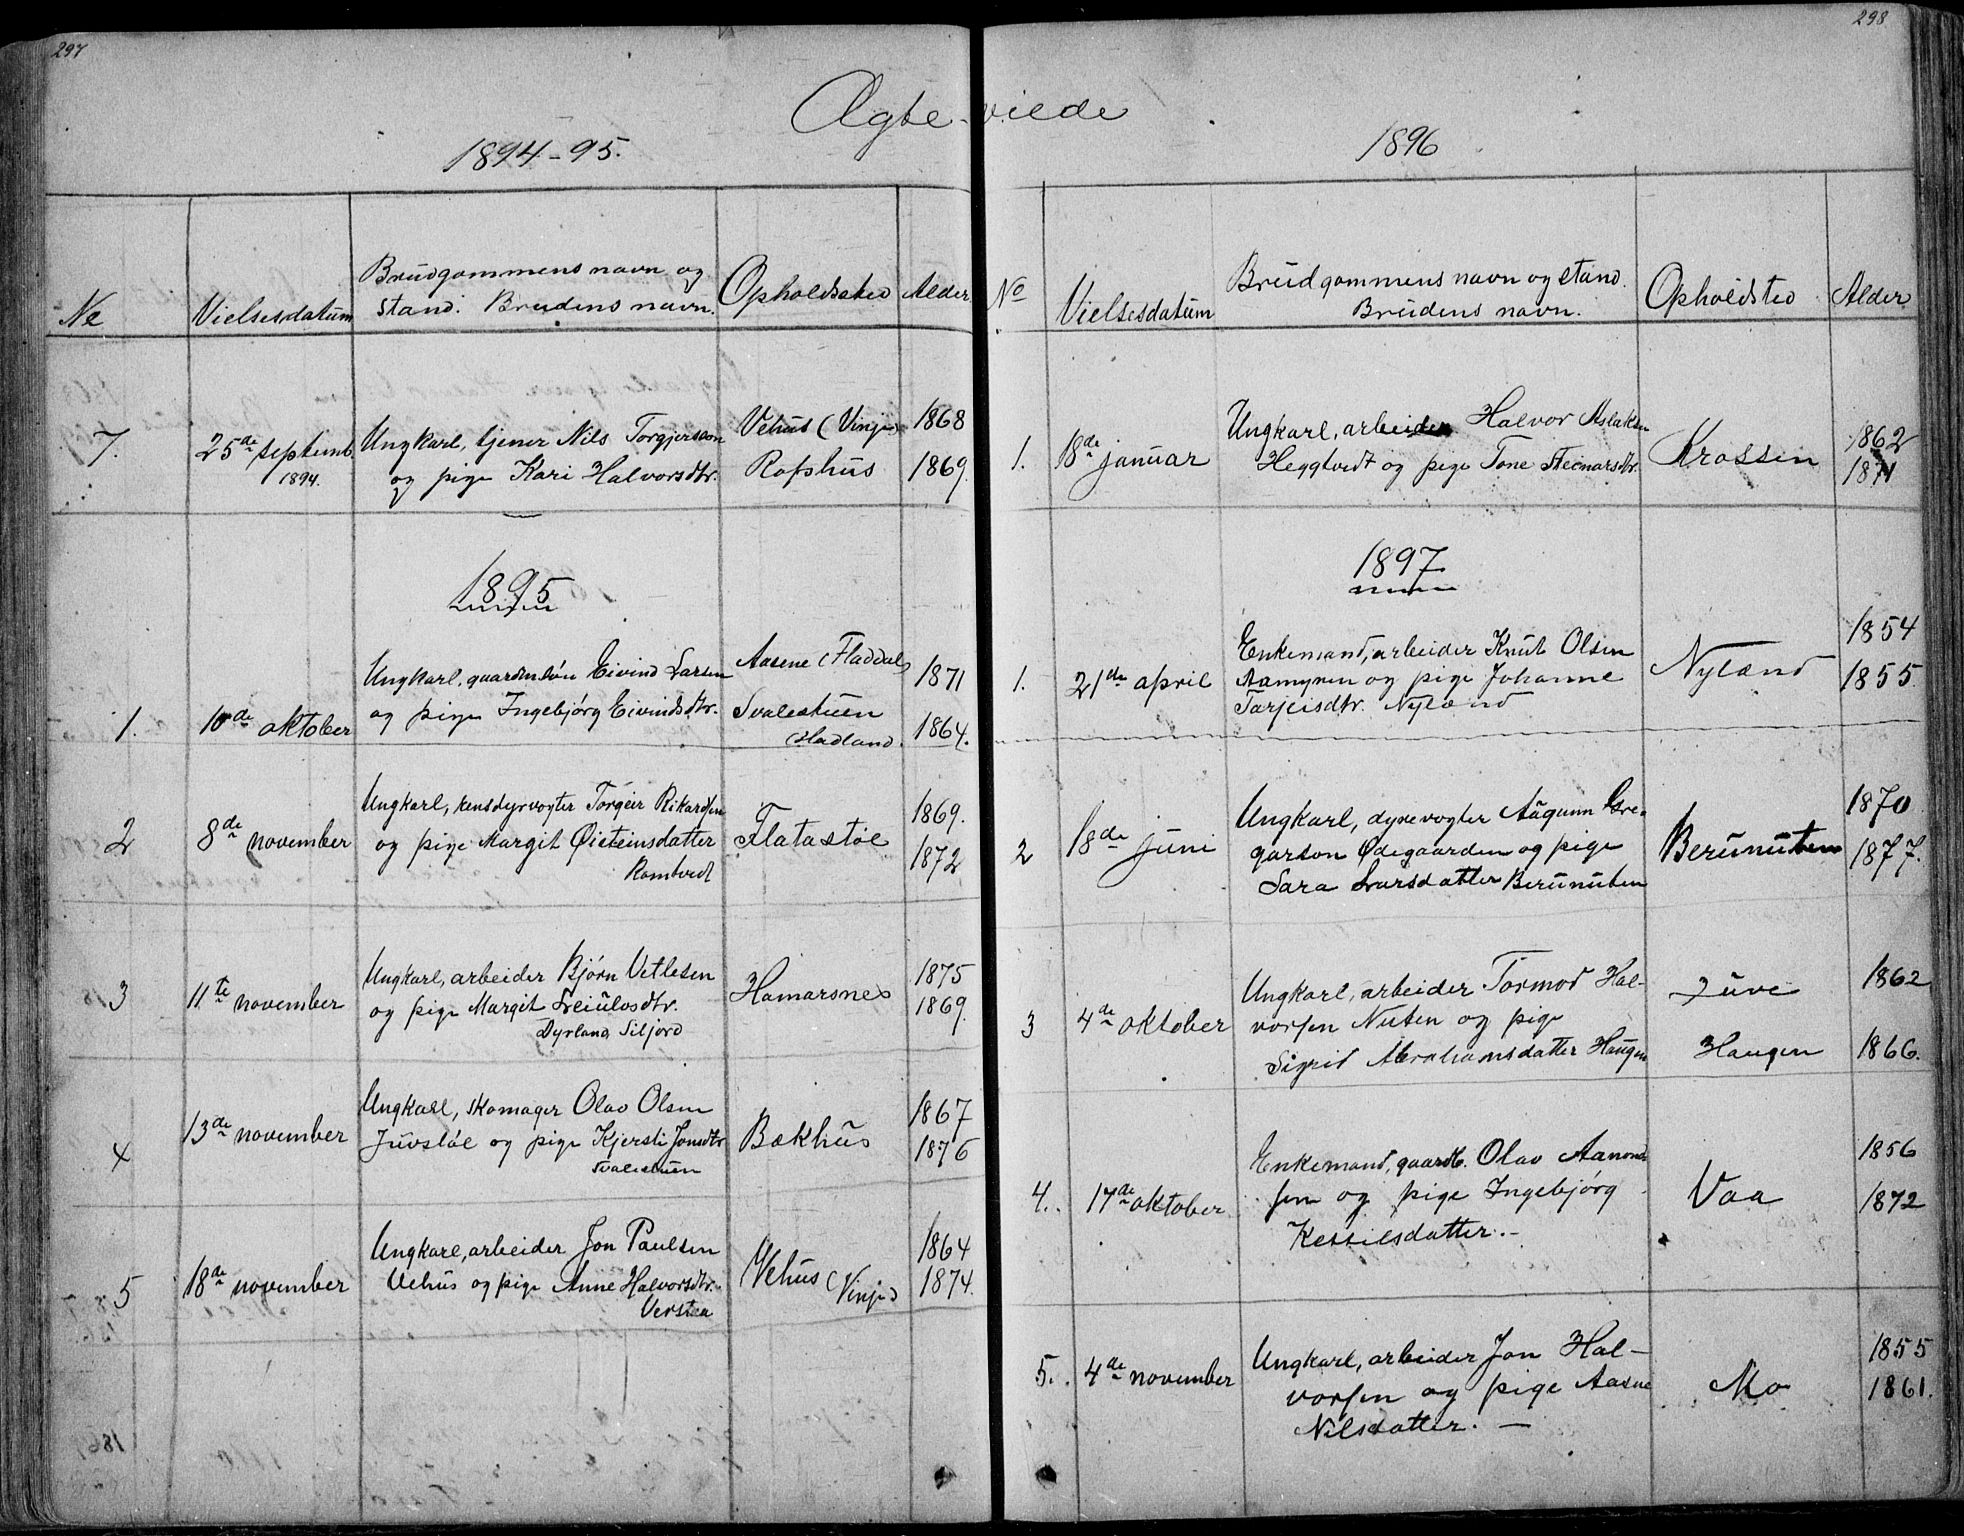 297
298
Ægte-viede
1894-95.
No
Vielsesdatum
Brudgommens navn og
stand. Brudens navn.
Opholdssted
Alder
7.
25de septemb.
1894.
Ungkarl, tjener Nils Torgjersson
og pige Kari Halvorsdtr.
Vehus (Vinje)
Rofshus
1868
1869.
1895
1.
10de oktober
Ungkarl, gaardm.søn Eivind Larsen
og pige Ingebjørg Eivindsdtr.
Aasene (Fladdal)
Svalestuen
(Hadland.
1871
1864.
2
8de november
Ungkarl, rensdyrvogter Torgeir Rikardsen
og pige Margit Øisteinsdatter
Romtvedt
Flatastøl
1869.
1872
3
11te november
Ungkarl, arbeider Bjørn Vetlesen
og pige Margit Sveinulvsdtr.
Dyrland, Siljord
Hamarsnes
1875
1869.
4
13de november
Ungkarl, skomager Olav Olsen
Juvstøl og pige Kjersti Jonsdtr
Svalestuen
Bækhus
1867
1876
5
18de november
Ungkarl, arbeider Jon Paulsen
Vehus og pige Anne Halvorsdtr.
Verstaa
Vehus (Vinje)
1864
1874.
1896
No
Vielsesdatum
Brudgommens navn og stand.
Brudens navn.
Opholdsted
Alder
1.
18de januar
Ungkarl, arbeider Halvor Aslaksen
Heggtvedt og pige Tone Steinarsdtr.
Krossen
1862
1871
1897
1.
21de april
Enkemand, arbeider Knut Olsen
Aamyren og pige Johanne
Tarjeisdtr. Nyland
Nyland
1854
1855
2
18de juni
Ungkarl, dyrevogter Aagunn Gre-
garson Ødegaarden og pige
Sara Larsdatter Berunuten
Berunuten
1870
1877.
3
4de oktober
Ungkarl, arbeider Tormod Hal-
vorsen Nuten og pige
Sigrid Abrahamsdatter Haugen
Juve
Haugen
1862
1866.
4.
17de oktober
Enkemand, gaardb. Olav Aanond-
sen og pige Ingebjørg
Kettilsdatter.-
Vaa
1856
1872
5.
4de november
Ungkarl, arbeider Jon Hal-
vorsen og pige Aasne
Nilsdatter. -
Mo
1855
1861.